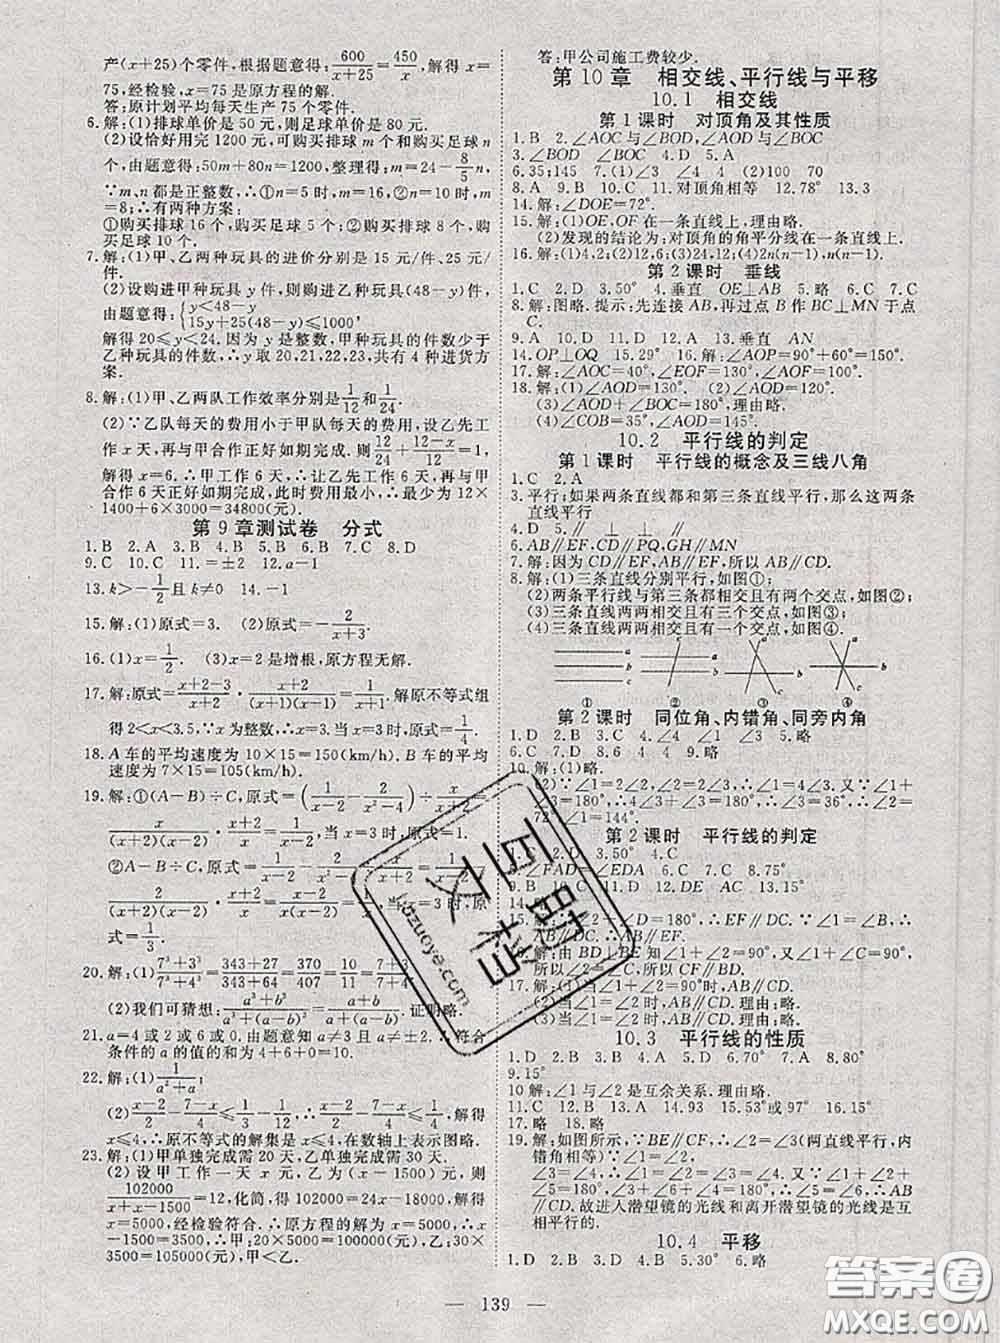 产(x+25)个零件,根据题意得:600/(x+25)=450/x,解得 x=
75,经检验,x=75 是原方程的解.
答:原计划平均每天生产 75 个零件.
6.解:(1)排球单价是 50 元,则足球单价是 80 元.
(2)设恰好用完 1200 元,可购买排球 m 个和购买足球 n
个,由题意得:50m+80n=1200,整理得:m=24-8/5n,
∵m、n 都是正整数,∴①n=5 时,m=16,②n=10 时,m
=8;∴有两种方案:
①购买排球 16 个,购买足球 5 个;②购买排球 8 个,购
买足球 10 个.
7.解:(1)甲、乙两种玩具的进价分别是 15元/件,25元/
件.
(2)设购进甲种玩具 y 件,则购进乙种玩具(48-y)件,
由题意得:{y<48-y 15y+25(48-y)≤1000,
解得 20≤y<24.因为 y 是整数,甲种玩具的件数少于
乙种玩具的件数,∴y 取 20,21,22,23,共有 4 种进货方
案.
8.解:(1)甲、乙两队工作效率分别是1/12和1/24.
(2)∵乙队每天的费用小于甲队每天的费用,设乙先工
作 x 天,再与甲合作正好如期完成,则12/24+(12-x)/12=1,
解得 x=6.∴甲工作 6 天,∴让乙先工作 6 天,再与甲
合作 6 天正好如期完成,此时费用最小,∴最少为 12×
1400+6×3000=34800(元).
第 9 章测试卷 分式
1.B 2.A 3.B 4.B 5.B 6.C 7.C 8.D
9.C 10.C 11.=±2 12.a-1
13.k>-1/2且 k≠0 14.-1
15.解:(1)原式=3. (2)原式=-2/(x+3).
16.(1)x=1/2. (3)x=2 是增根,原方程无解.
17.解:原式=(x+2-3)/(x+2)·(x+2)/((x+1)(x-1))=1/(x+1).解原不等式组
得 2<x<3.5,∵x 为整数,∴x=3.当 x=3 时,原式=1/4.
18.A 车的平均速度为 10×15=150(km/h).B 车的平均
速度为 7×15=105(km/h).
19.解:①(A-B)÷C,原式=(1/(x-2)-2/(x²-4))÷x/(x+2)=
x/((x+2)(x-2))·(x+2)/x=1/(x-2).当 x=3 时,原式=1.
②A-B÷C,原式=1/(x-2)-2/(x²-4)÷x/(x+2)=1/(x-2)-
2/((x+2)(x-2))·(x+2)/x=1/x.当 x=3 时,原
式=1/3.
20.解:(1)(7³+3³)/(7³+4³)=(343+27)/(343+64)=370/407=10/11=(7+3)/(7+4)
(2)我们可猜想:(a³+b³)/(a³+(a-b)³)=(a+b)/(a+(a-b)).证明略.
21.a=4 或 2 或 6 或 0.由题意知 a≠3 且 a≠±2.∴符合
条件的 a 的值的和为 4+6+0=10.
22.解:(1)1/(a²+a)
(2)(x-2)/4-(7-x)/4≤1/3-1/12∴(x-2)/4-(7-x)/4≤1/4∴
x≤4,∴原不等式的解集是 x≤4,在数轴上表示图略.
23.解:(1)甲单独完成需 20 天,乙单独完成需 30 天.
(2)设甲工作一天 x 元,乙为(x-1500)元,则
102000/(x+x-1500)=12,化简,得 102000=24x-18000,解得
x=5000,经检验符合.∴原方程的解为 x=5000,∴x-
1500=3500,∴甲:5000×20=100000(元),乙:30×
3500=105000(元),甲<乙.
答:甲公司施工费较少.
第 10 章 相交线、平行线与平移
10.1 相交线
第 1 课时 对顶角及其性质
1.B 2.∠AOC 与∠BOD,∠AOD 与∠BOC
3.∠BOD ∠BOC 4.D 5.A
6.35;145 7.(1)∠3 ∠4 (2)100 70
8.A 9.B 10.C 11.对顶角相等 12.78° 13.3
14.解:∠DOE=72°.
15.解:(1)OE,OF 在一条直线上,理由略.
(2)发现的结论为:对顶角的角平分线在一条直线上.
16.(1)4,2;(2)6,3;(3)12,6;(3)24,12;(4)2n(n-1),n(n-1)
第 2 课时 垂线
1.C 2.D 3.50° 4.垂直 OE⊥AB 5.C 6.C 7.C
8.解:图略.提示:先连接 AB,再过点 B 作 BC⊥MN 于点
C.
9.B 10.C 11.D 12.A 13.垂直 AN
14.OP⊥OQ 15.29° 16.解:∠AOP=90°+60°=150°.
17.解:∠AOC=40°,∠EOF=130°,∠AOF=100°.
18.解:(1)∠AOD=130°. (2)∠AOD=120°.
(3)∠AOD+∠BOC=180°,理由略.
(4)∠COB=35°,∠AOD=145°.
10.2 平行线的判定
第 1 课时 平行线的概念及三线八角
1.C 2.A
3.平行;如果两条直线都和第三条直线平行,那么这两条
直线平行
4.D
6.AB∥EF,CD∥PQ,GH∥MN
7.解:因为 CD∥EF,AB∥EF,所以 AB∥CD.
8.解:(1)三条直线分别平行,如图①;
(2)两条平行线与第三条都相交且有两个交点,如图②;
(3)三条直线两两相交且有三个交点,如图③;
(4)三条直线两两相交且有一个交点,如图④.
a
b
c
① ② ③ ④
第 2 课时 同位角、内错角、同旁内角
1.D 2.B 3.C 4.∠4 ∠1 ∠2 5.略
6.C 7.D 8.6 4 4 9.略
10.解:(1)略.
(2)∵∠1=2∠2,∠2=2∠3,∴∠1=4∠3.又∵∠1+
∠3=180°,∴4∠3+∠3=180°,∴∠3=36°,∴∠2=
72°,∠1=144°.
第 2 课时 平行线的判定
2.D 3.50° 4.C
∠FAD=∠EDA 6.C 7.C 8.75°
10.B 11.C 12.DE AC 13.15°
15.解:∵∠1+∠2=180°,∴EF∥DC.∵∠1=∠B,∴EF
∥AB,所以 AB∥CD.
由 BD⊥BE 知∠1+∠2=90°,又∵∠1+∠C=90°,
所以∠2=∠C.∴CF∥BD.
17.解:(1)当∠1=∠2时,AB∥CD.理由:略;
(2)当∠1=∠2 时,AB∥CD.理由:略;
(3)当∠1=∠2 时,AB∥CD.理由:略.
10.3 平行线的性质
1.D 2.B 3.B 4.A 5.D 6.70° 7.A 8.80°
9.15°
10.解:∠1 与∠2 是互余关系.理由略.
11.C 12.B 13.A 14.93 15.53°或 97° 16.15°
17.略 18.略
19.解:如图所示,∵BE∥CF,∴∠2=∠3(两直线平行,内
错角相等)∵∠1=∠2,∠3=∠4,∴∠1=∠2=
∠3=∠4,∴∠1+∠2=∠3+∠4.又∵∠1+∠2+
∠5=180°,∠3+∠4+∠6=180°,∴∠5=∠6,∴AB
∥CD.故进入潜望镜的光线和离开潜望镜的光线是互
相平行的.
10.4 平移
1.D 2.C 3.D 4.B 5.30° 6.略
— 139 —
百文档
答案圈
MXQE.COM